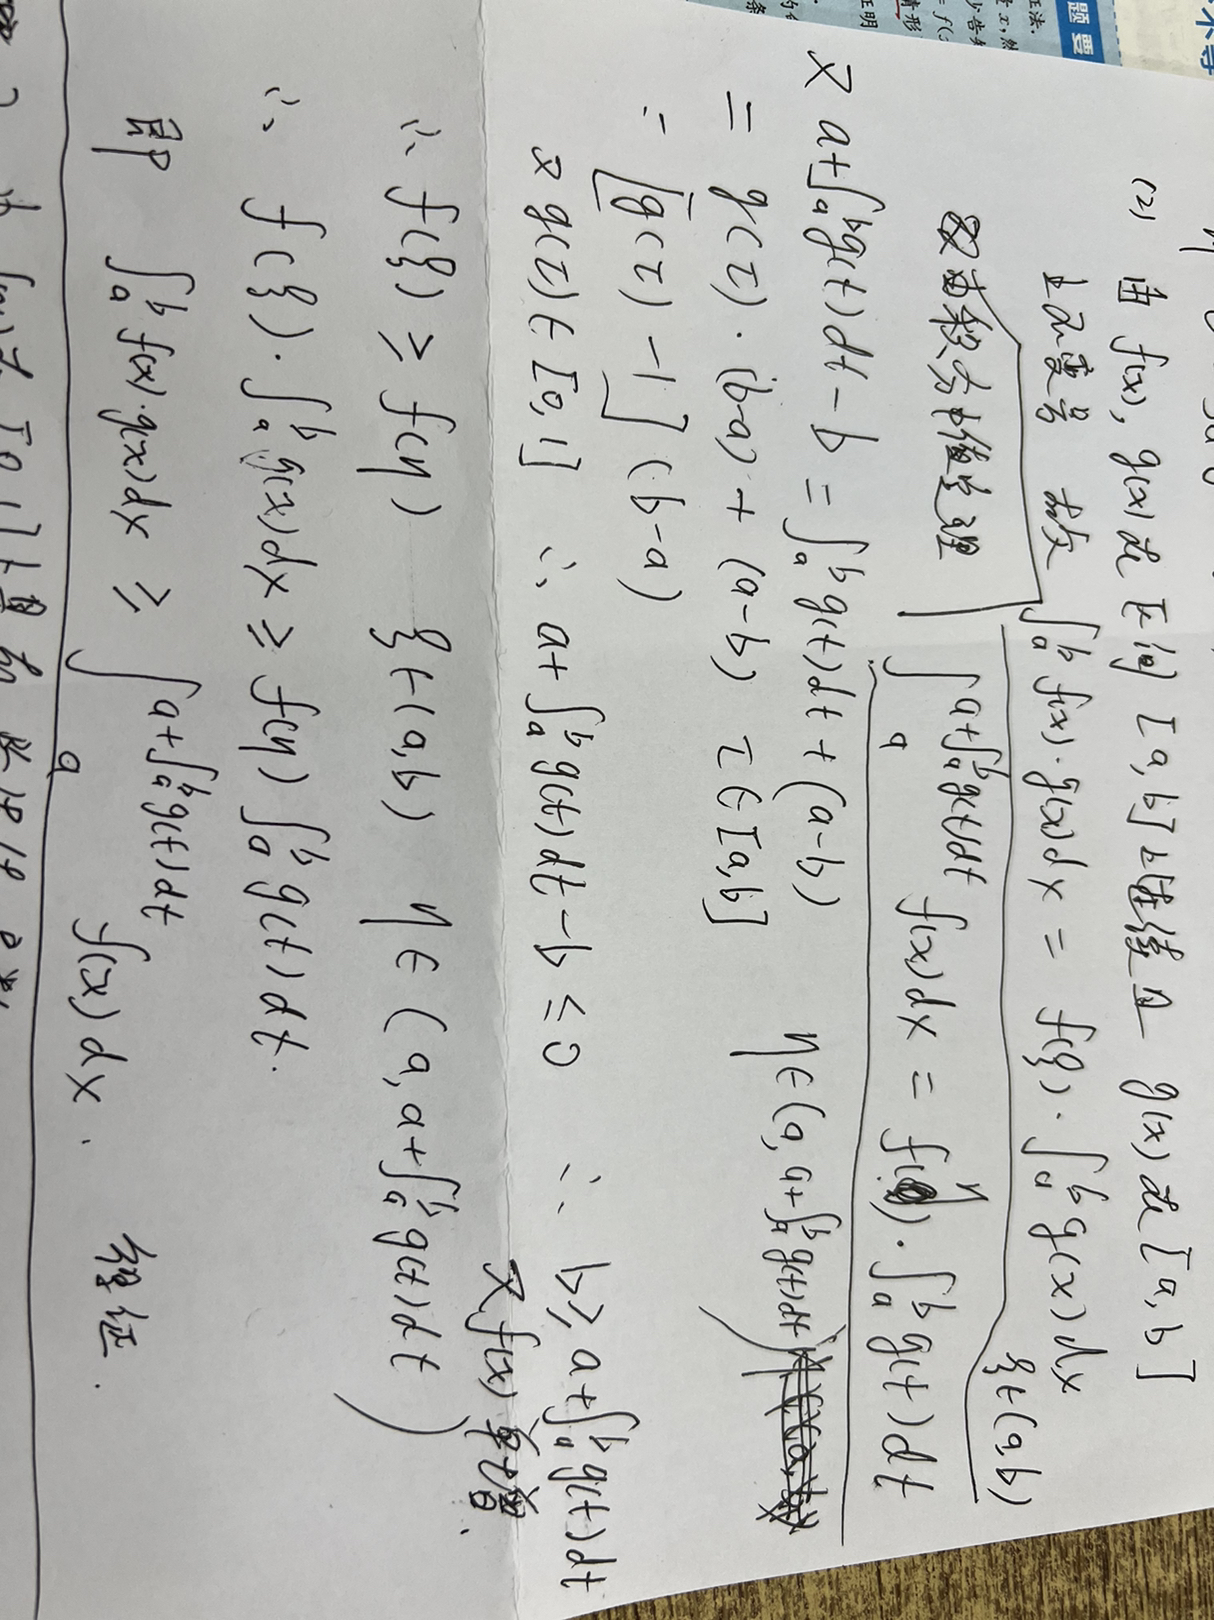 (2) 由 f(x), g(x) 在区间 [a, b] 上连续且 g(x) 在 [a, b]
上不变号 故 ∫_a^b f(x)·g(x)dx = f(ξ)·∫_a^b g(x)dx ξ∈(a,b)
又由积分中值定理 ∫_a^{a+∫_a^b g(t)dt} f(x)dx = f(η)·∫_a^b g(t)dt
η∈(a, a+∫_a^b g(t)dt)
又 a+∫_a^b g(t)dt-b = ∫_a^b g(t)dt+(a-b)
= g(τ)·(b-a)+(a-b) τ∈[a,b]
= [g(τ)-1](b-a)
又 g(τ)∈[0,1] ∴ a+∫_a^b g(t)dt-b≤0 ∴ b≥a+∫_a^b g(t)dt
又 f(x) 单增.
∴ f(ξ)≥f(η) ξ∈(a,b) η∈(a, a+∫_a^b g(t)dt)
∴ f(ξ)·∫_a^b g(x)dx≥f(η)∫_a^b g(t)dt.
即 ∫_a^b f(x)·g(x)dx ≥ ∫_a^{a+∫_a^b g(t)dt} f(x)dx. 得证.